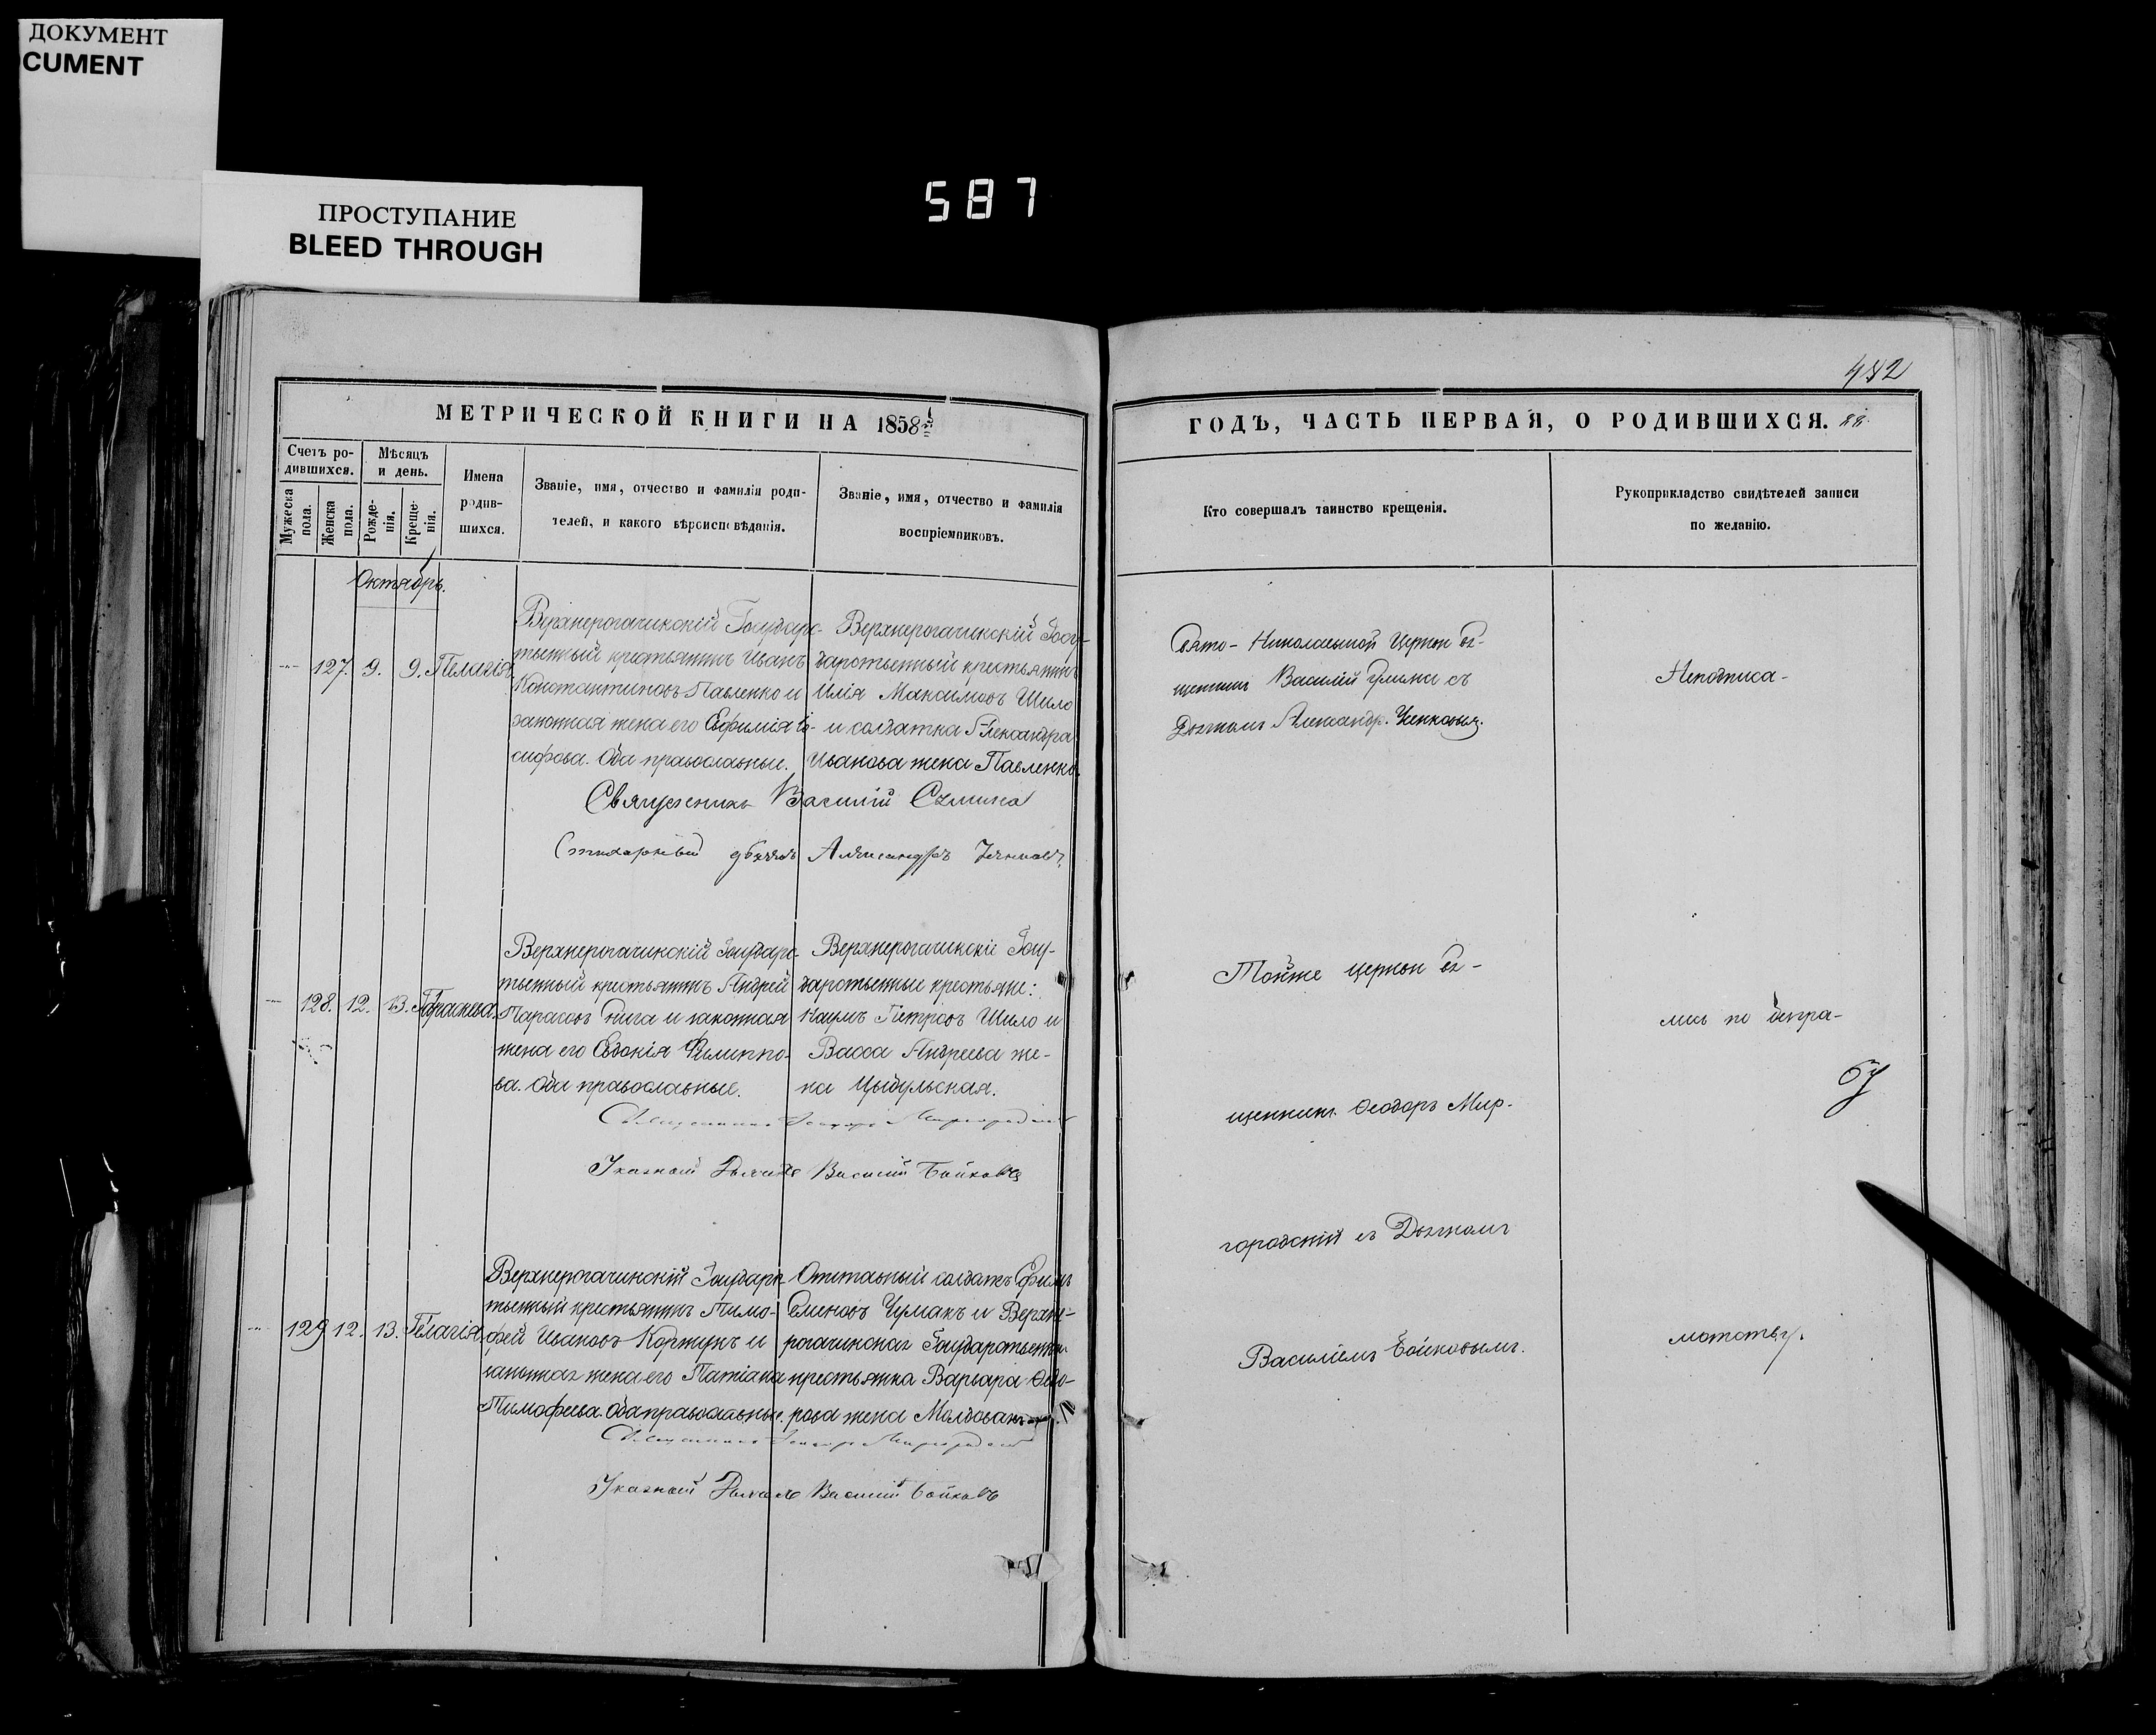 ДОКУМЕНТ
OCUMENT
ПРОСТУПАНИЕ
BLEED THROUGH
587
442
МЕТРИЧЕСКОЙ КНИГИ НА 1858й
ГОДЪ, ЧАСТЬ ПЕРВАЯ, О РОДИВШИХСЯ.
Счетъ ро-
дившихся.
Мужеска
пола.
Женска
пола.
Мѣсяцъ
и день.
Рожде-
нія.
Креще-
нія.
Имена
родив-
шихся.
Званіе, имя, отчество и фамилія роди-
телей, и какого вѣроисповѣданія.
Званіе, имя, отчество и фамилія
воспріемниковъ.
Кто совершалъ таинство крещенія.
Рукоприкладство свидѣтелей записи
по желанію.
Октябрь.
127. 9. 9. Пелагія
Верхнерогачикскій Государс-
твенный крестьянинъ Иванъ
Константиновъ Павленко и
законная жена его Евфимія Іо-
сифова. Оба православные.
Верхнерогачикскій Госу-
дарственный крестьянинъ
Илія Максимовъ Шило
и солдатка Александра
Иванова жена Павленко.
Священникъ Василій
Стихарный дьячокъ Александръ
Свято-Николаевской Церкви Свя-
щенникъ Василій съ
Дьячкомъ Александр.
Неподписа-
128. 12. 13. Параскева.
Верхнерогачикскій Государс-
твенный крестьянинъ Андрей
Тарасовъ Книга и законная
жена его Евдокія Филиппо-
ва. Оба православные.
Верхнерогачикскіе Госу-
дарственные крестьяне:
Наумъ Петровъ Шило и
Васса Андреева же-
на Цыбульская.
Священникъ Феодоръ Миргородскій
Указный Дьячекъ Василій Бойковъ
Тойже церкви Свя-
щенник. Феодоръ Мир-
городскій съ Дьячкомъ
Василіемъ Бойковымъ.
лись по безгра-
мотству.
129 12. 13. Пелагія
Верхнерогачикскій Государс-
твенный крестьянинъ Тимо-
фей Ивановъ Коржунъ и
законная жена его Татіана
Тимофеева. Оба православные.
Отставный солдатъ Ефимъ
Семеновъ Чумакъ и Верхне-
рогачикская Государственная
крестьянка Варвара Федо-
рова жена
Священникъ Феодоръ Миргородскій
Указный Дьячекъ Василій Бойковъ